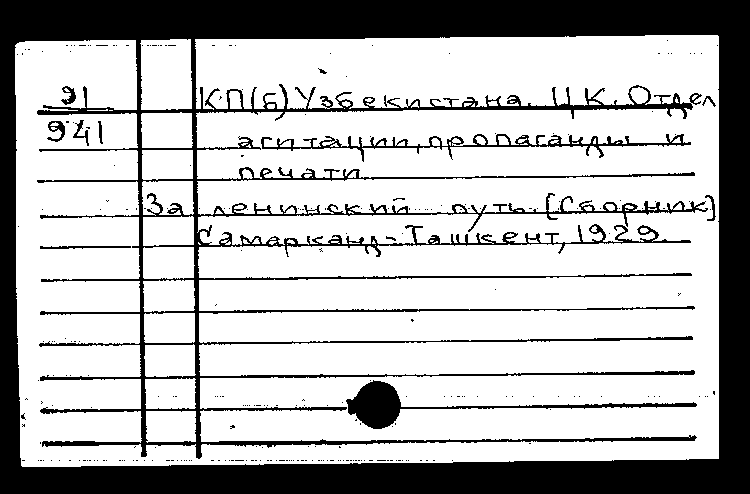 91
941
КП(б) Узбекистана. ЦК. Отдел
агитации, пропаганды и
печати.
За ленинский путь. [Сборник]
Самарканд-Ташкент, 1929.